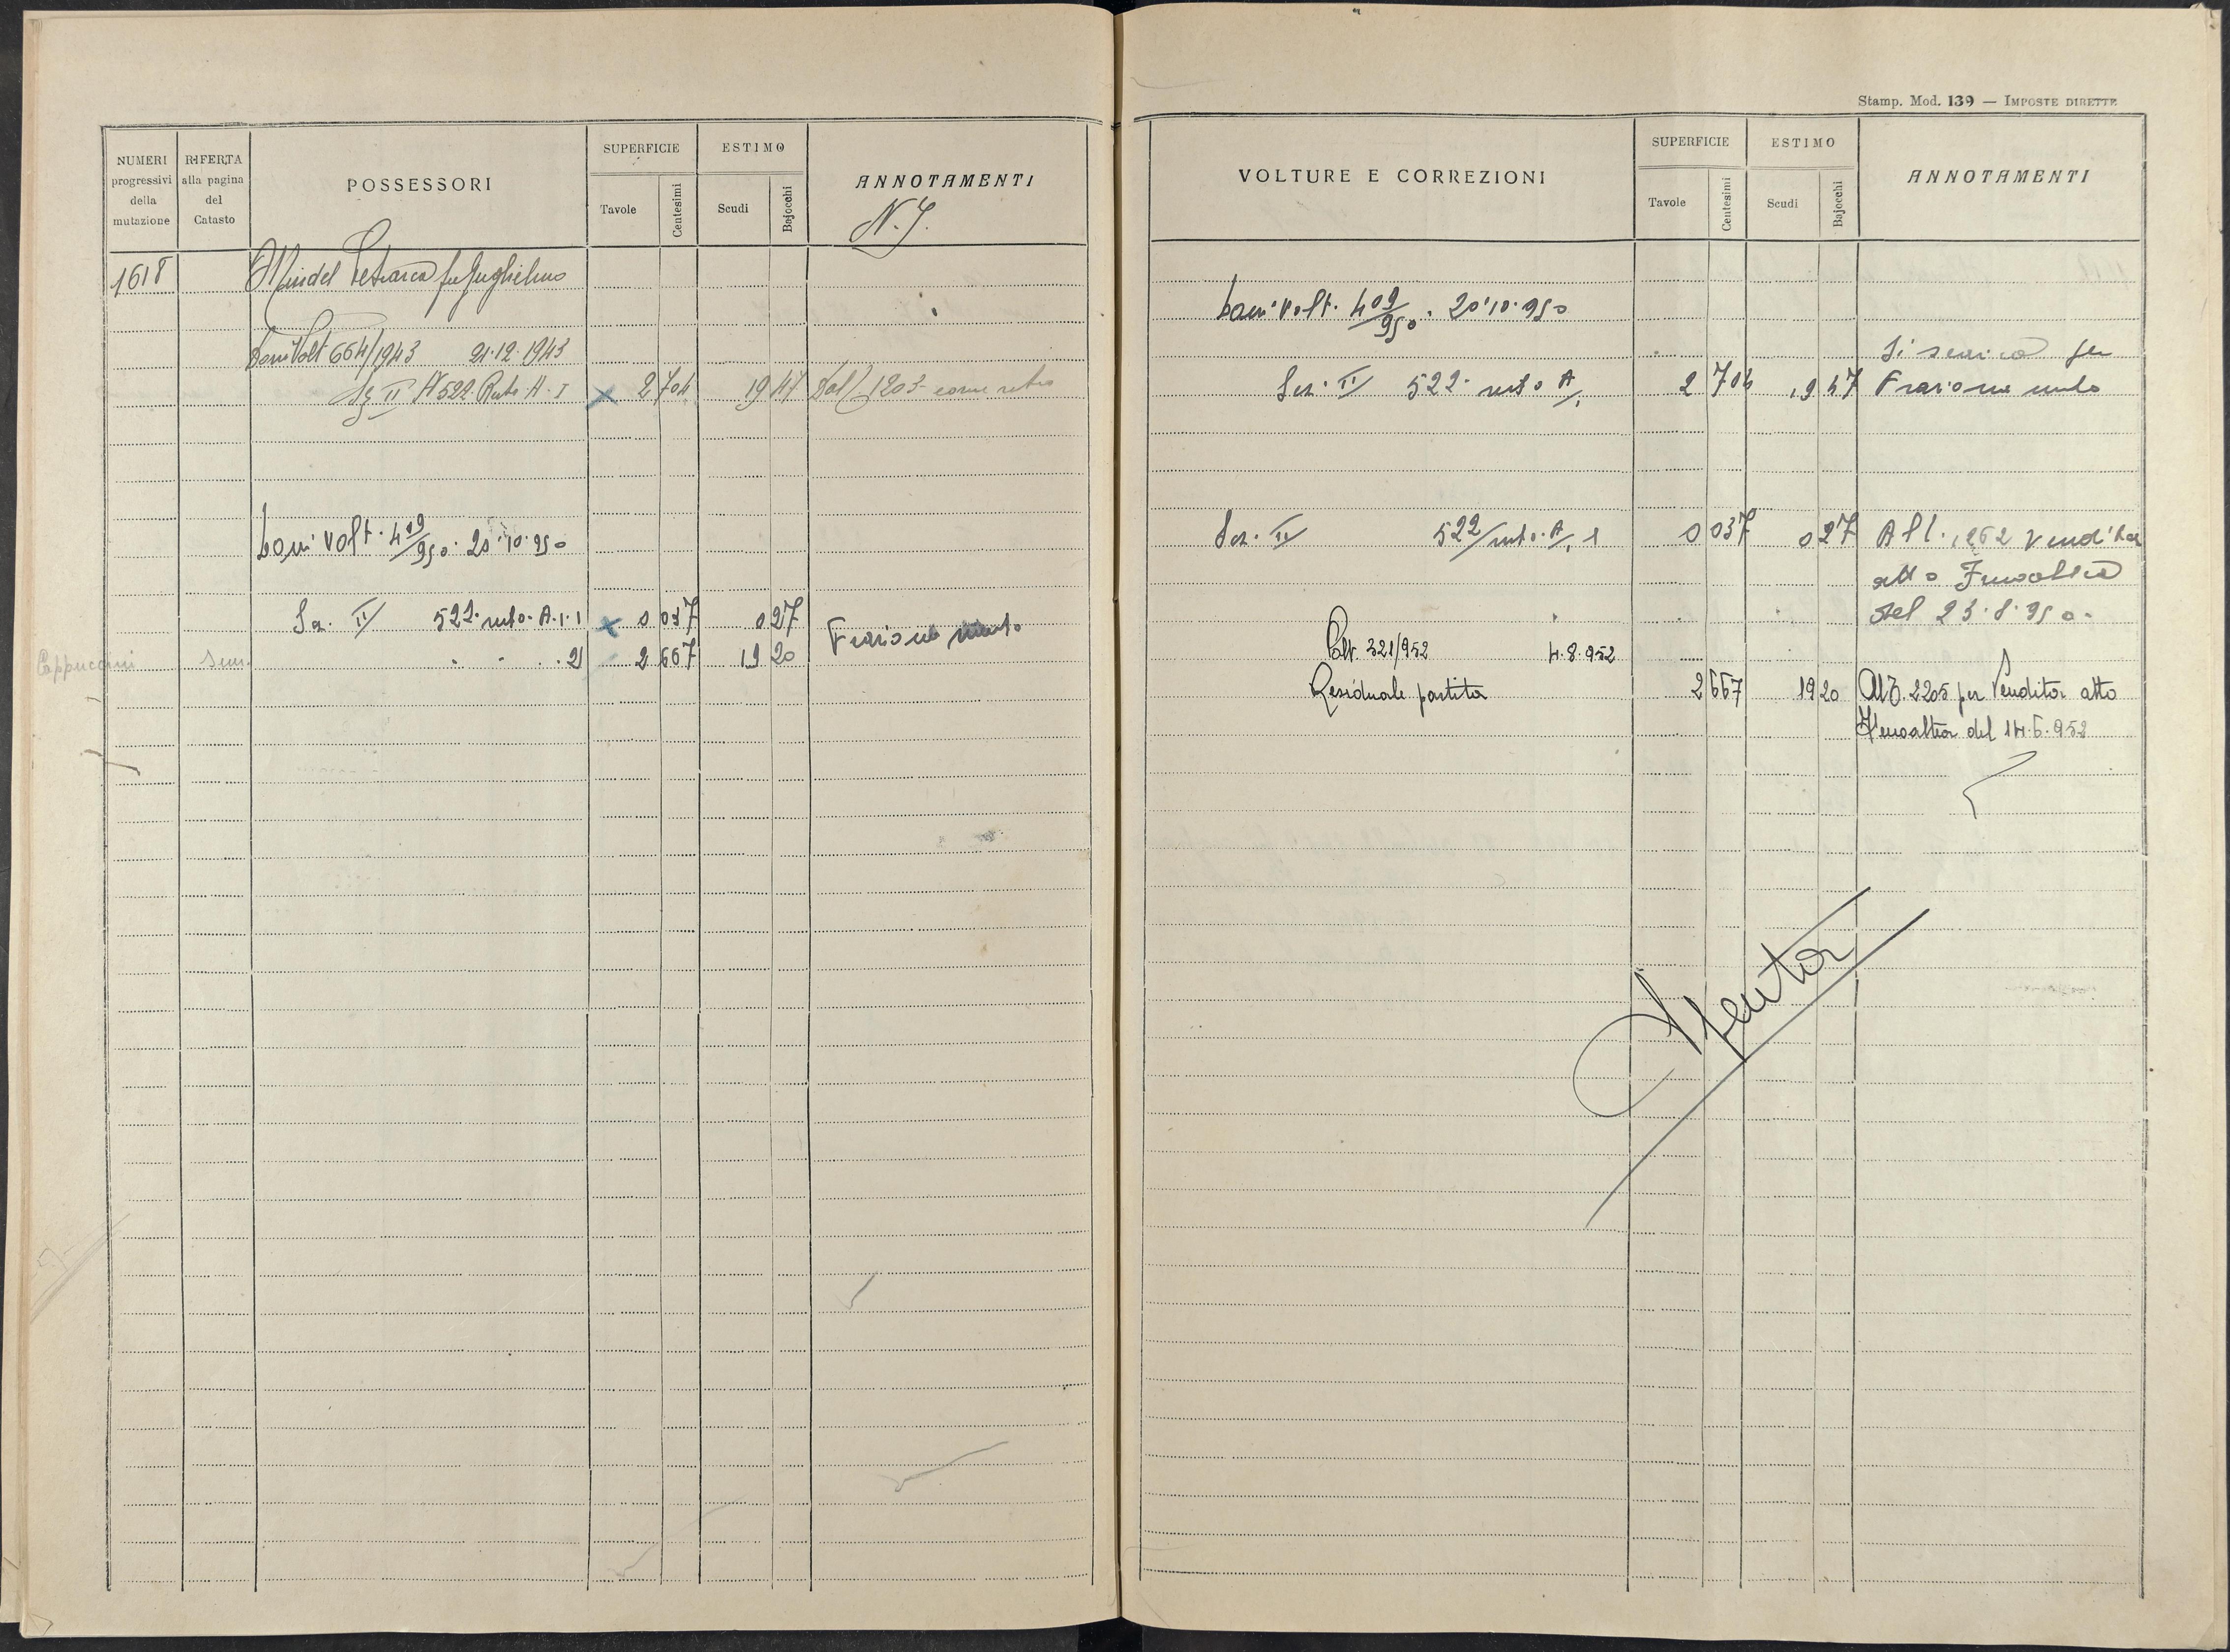 NUMERI progressivi della mutazione
RIFERTA alla pagina del Catasto
POSSESSORI
SUPERFICIE
Tavole
Centesimi
ESTIMO
Scudi
Bajocchi
ANNOTAMENTI
1618
Petrarca fu Guglielmo
Volt 664/1943 21.12.1943
II N 522 Ruto A. I 2 704 19 47 Dal 1203 come retro
Volt. 409/950. 20.10.950
Sez. II 522. ruto. A.1.1 0 037 0 27 Frazionamento
Cappuccini Sem. " " . 2 2 667 19 20
Stamp. Mod. 139 — IMPOSTE DIRETTE
VOLTURE E CORREZIONI
SUPERFICIE
Tavole
Centesimi
ESTIMO
Scudi
Bajocchi
ANNOTAMENTI
Volt. 409/950. 20.10.950
Si scarica per
Sez. II 522. ruto A/1 2 704 19 47 Frazionamento
Sez. II 522/ruto. A/1 1 0 037 0 27 All. 1262 Vendita
atto Fenoaltea
del 23.8.950.
Volt. 321/952 4.8.952
Residuale partita 2 667 19 20 All. 2205 per Vendita atto
Fenoaltea del 14.6.952
Spenta